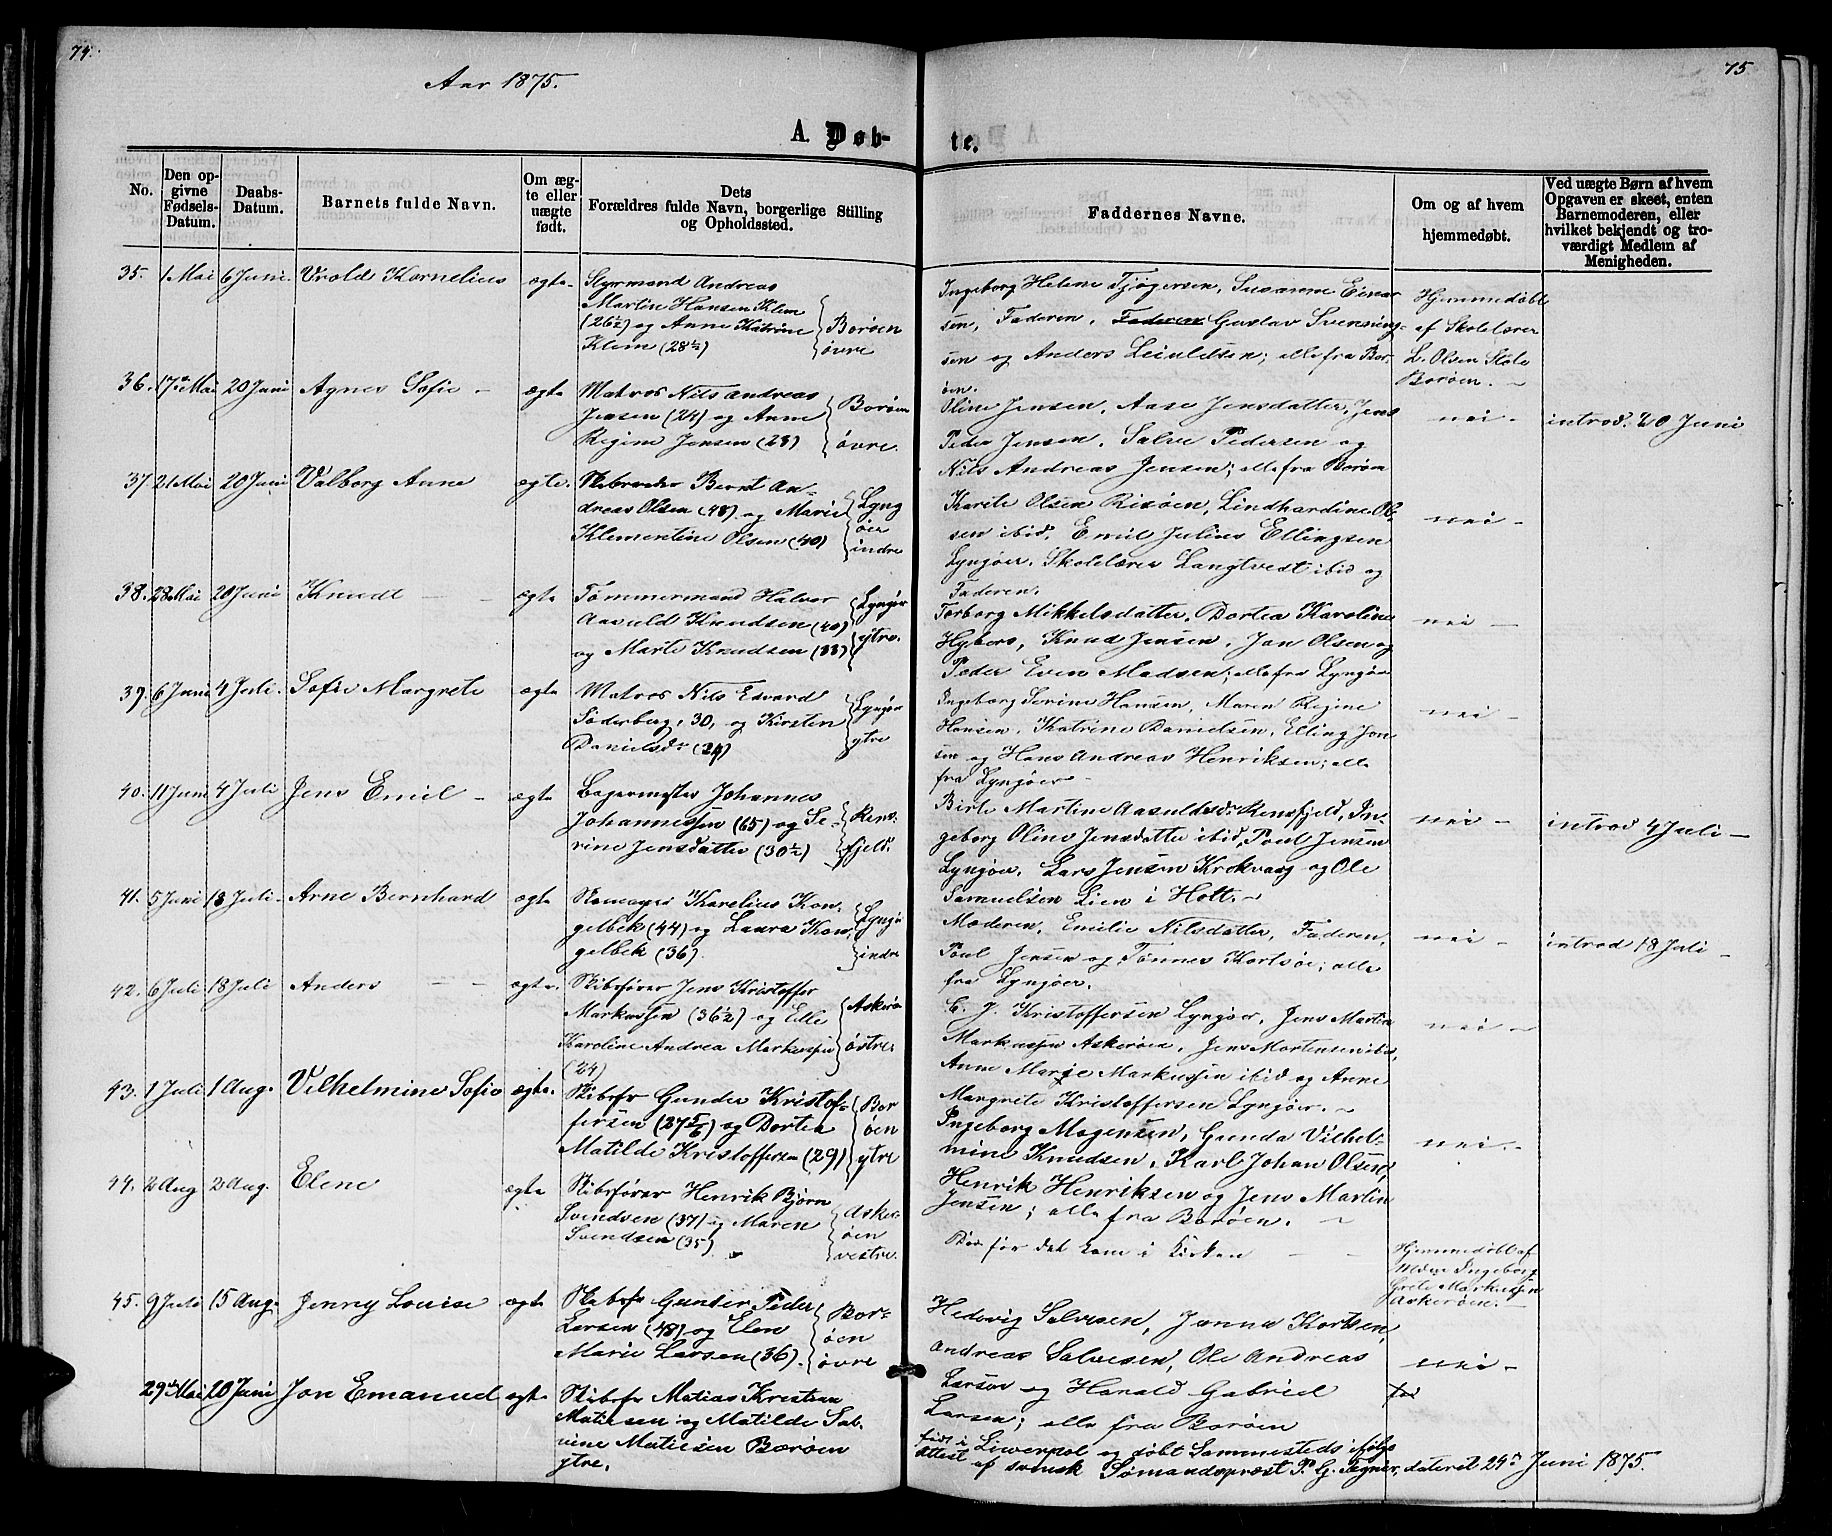 74.
75
Aar 1875.
A. Døb-
te.
No.
Den op-
givne
Fødsels-
Datum.
Daabs-
Datum.
Barnets fulde Navn.
Om æg-
te eller
uægte
født.
Dets
Forældres fulde Navn, borgerlige Stilling
og Opholdssted.
Faddernes Navne.
Om og af hvem
hjemmedøbt.
Ved uægte Børn af hvem
Opgaven er skeet, enten
Barnemoderen, eller
hvilket bekjendt og tro-
værdigt Medlem af
Menigheden.
35. 1 Mai 6 Juni Vrold Kornelius ægte
Styrmand Andreas
Martin Hansen Klem
(26½) og Anne Katrine
Klem (28½)
Borøen
øvre
Ingeborg Helene Tjøgersen, Susanne Einar
sen, Faderen, Faderen Gustav Svennung-
sen og Anders Leiulfsen; alle fra Bor-
øen.
Hjemmedøbt
af Skolelærer
L. Olsen Stole
Borøen.
36. 17de Mai 20 Juni Agnes Sofie - ægte
Matros Nils Andreas
Jensen (24) og Anne
Regine Jensen (23)
Borøen
øvre.
Oline Jensen, Aase Jensdatter, Jens
Peder Jensen, Salve Pedersen og
Nils Andreas Jensen; alle fra Borøen
nei -
introd. 20 Juni
37. 21 Mai 20 Juni Valborg Anne ægte.
Skibsreder Bernt An-
dreas Olsen (48) og Marie
Klementine Olsen (40)
Lyng
øer
indre
Karete Olsen Risøen, Lindhardine Ol-
sen ibid, Emil Julius Ellingsen
Lyngøer, Skolelærer Langtvedt ibid og
Faderen.
nei -
38. 28 Mai 20 Juni Knudt - - ægte
Tømmermand Halvor
Aasuld Knudsen (40)
og Marte Knudsen (33)
Lyngør
ytre.
Torborg Mikkelsdatter, Dortea Karoline
Hyberg, Knud Jensen, Jan Olsen og
Peder Even Madsen; alle fra Lyngør
nei -
39. 6 Juni 4 Juli. Sofie Margrete ægte
Matros Nils Edvard
Söderberg, 30, og Kirsten
Danielsdr (24)
Lyngør
ytre
Ingeborg Serine Hansen, Maren Regine
Hansen, Katrine Danielsen, Elling Jon
sen og Hans Andreas Henriksen; alle
fra Lyngøer
nei -
40. 11 Juni 4 Juli Jens Emil - ægte
Bagermester Johannes
Johannessen (65) og Se-
rine Jensdatter (30½)
Rens-
fjeld.
Birte Martine Aasuldsdr Rensfjeld, In-
geborg Oline Jensdatter ibid, Poul Jensen
Lyngøer, Lars Jensen Krokvaag og Ole
Samuelsen Lien i Holt. -
nei -
introd 4 Juli -
41. 5 Juni 18 Juli. Arne Bernhard ægte
Karelius Kon-
gelbek (44) og Laura Kon-
gelbek (36)
Lyngø
indre
Moderen, Emilie Nilsdatter, Faderen,
Poul Jensen og Tønnes Kortsøe; alle
fra Lyngøer.
nei -
introd 18 Juli -
42. 6 Juli 18 Juli Anders - - ægte.
Skibsfører Jens Kristoffer
Markussen (36½) og Elle
Karoline Andrea Markussen
(24)
Askerø
østre
C. J. Kristoffersen Lyngøer, Jens Martin
Markussen Askerøen, Jens Mortensen ibid,
Anne Marie Markussen ibid og Anne
Margrete Kristoffersen Lyngøer. -
nei -
43. 1 Juli 1 Aug. Vilhelmine Sofie ægte.
Skibsfr Gunder Kristof-
fersen (27 5/6) og Dortea
Matilde Kristoffersen (29)
Bor
øen
ytre
Ingeborg Mogensen, Gunda Vilhel-
mine Knudsen, Karl Johan Olsen,
Henrik Henriksen og Jens Martin
Jensen; alle fra Borøen. -
nei.-
44. 2 Aug 2 Aug. Elene ægte
Skibsfører Henrik Bjørn
Svendsen (37) og Maren
Svendsen (35)
Asker-
øen
vestre.
Døe før det kom i Kirken - -
Hjemmedøbt af
Ingeborg
Grete Markussen
Askerøen. -
45. 9 Juli 15 Aug. Jenny Louise ægte
Skibsfr Gunder Peder
Larsen (48) og Elen
Marie Larsen (36).
Bor-
øen
øvre
Hedevig Salvesen, Janna Kortsen,
Andreas Salvesen, Ole Andreas
Larsen og Harald Gabriel
Larsen; alle fra Borøen
nei -
29de Mai 20 Juni Jon Emanuel ægte
Skibsfr Matias Kristian
Matiesen og Matilde Sab-
riene Matiesen Borøen
ytre.
født i Liverpol og døbt Sammesteds ifølge
Attest af svensk Sømandspræst P. G. Tegner, dateret 29de Juni 1875.